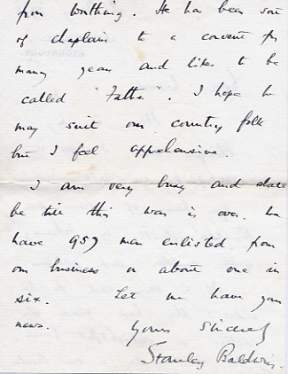 from Worthing. He has been sort
of chaplain to a convent for
many years and likes to be
called "Father". I hope he
may suit our country folk
but I feel apprehensive.
I am very busy and shall
be till this war is over. We
have 957 men enlisted from
our business or about one in
six. Let me have your
news.
Yours sincerely
Stanley Baldwin.